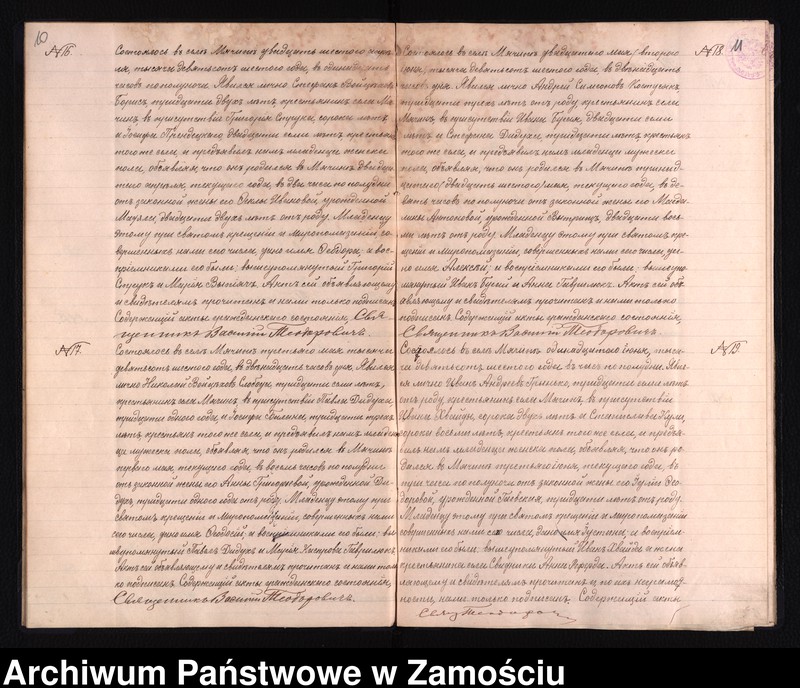 10
№16.
Состоялось въ селѣ Мячинѣ двадцать шестого
ля, тысяча девятьсотъ шестого года, въ
часовъ по полуночи. Явился лично Стефанъ
Борисъ, тридцати двухъ лѣтъ крестьянинъ села Мя
чинъ въ присутствіи Григорія Струка, сорока лѣтъ
и Іосифа двадцати семи лѣтъ крестьянъ
того же села, и предъявилъ намъ младенца женска
пола, объявляя, что онъ родился въ Мячинѣ двадца
таго текущаго года, въ два часа по полудни
отъ законной жены его Ивановой, урожденной
двадцати двухъ лѣтъ отъ роду. Младенцу
этому при святомъ крещеніи и миропомазаніи со
вершенныхъ нами сего числа, дано имя Ѳеодора, а вос
пріемниками его были: вышеупомянутый Григорій
Струкъ и Марія Актъ сей объявляющему
и свидѣтелямъ прочитанъ и нами только подписанъ
Содержащій акты гражданскаго состоянія, Свя
щенникъ Василій Теодоровичъ.
№17.
Состоялось въ селѣ Мячинѣ третьяго мая тысяча
девятьсотъ шестого года, въ двѣнадцать часовъ дня. Явился
лично Николай тридцати семи лѣтъ,
крестьянинъ села Мячинъ, въ присутствіи Павла Дидуха,
тридцати одного года, и Іосифа тридцати трехъ
лѣтъ крестьянъ того же села, и предъявилъ намъ младен
ца мужеска пола, объявляя что онъ родился въ Мячинѣ
перваго мая, текущаго года, въ восемь часовъ по полудни
отъ законной жены его Анны Григорьевой, урожденной Ди
духъ, тридцати одного года отъ роду. Младенцу этому при
святомъ крещеніи и миропомазаніи, совершенныхъ нами
сего числа, дано имя Ѳеодосій и воспріемниками его были: вы
шеупомянутый Павелъ Дидухъ и Марія
Актъ сей объявляющему и свидѣтелямъ прочитанъ и нами толь
ко подписанъ Содержащій акты гражданскаго состоянія,
Священникъ Василій Теодоровичъ.
11
№18.
Состоялось въ селѣ Мячинѣ двадцатаго мая /второго
іюня/ тысяча девятьсотъ шестого года, въ двѣнадцать
часовъ дня. Явился лично Андрей Симоновъ
тридцати трехъ лѣтъ отъ роду, крестьянинъ села
Мячинъ въ присутствіи Ивана двадцати семи
лѣтъ и Стефана Дидуха, тридцати лѣтъ крестьянъ
того же села, и предъявилъ намъ младенца мужеска
пола, объявляя, что онъ родился въ Мячинѣ тринад
цатаго /двадцать шестого/ мая, текущаго года, въ де
вять часовъ по полуночи отъ законной жены его Магда
лины Антоновой, урожденной двадцати вось
ми лѣтъ отъ роду. Младенцу этому при святомъ кре
щеніи и Миропомазаніи, совершенныхъ нами сего числа, да
но имя Алексѣй, и воспріемниками его были: вышеупо
мянутый Иванъ и Анна Гаврилюкъ. Актъ сей объ
являющему и свидѣтелямъ прочитанъ и нами только
подписанъ Содержащій акты гражданскаго состоянія,
Священникъ Василій Теодоровичъ.
№19.
Состоялось въ селѣ Мячинѣ одинадцатаго іюня, тыся
ча девятьсотъ шестого года въ часъ по полудни. Яви
лся лично Иванъ Андреевъ тридцати семи лѣтъ
отъ роду, крестьянинъ села Мячинъ, въ присутствіи
Ивана Хвайды, сорока двухъ лѣтъ и Станислава
сорока восьми лѣтъ, крестьянъ того же села, и предъя
вилъ намъ младенца женска пола, объявляя, что онъ ро
дился въ Мячинѣ третьяго іюня, текущаго года, въ
три часа по полуночи отъ законной жены его Юліи Ѳео
доровой, урожденной тридцати лѣтъ отъ роду.
Младенцу этому при святомъ крещеніи и миропомазаніи
совершенныхъ нами сего числа, дано имя Іустина, и воспріем
никами его были, вышеупомянутый Иванъ Хвайда и жена
крестьянина села Анна Актъ сей объяв
ляющему и свидѣтелямъ прочитанъ и по ихъ неграмот
ности, нами только подписанъ. Содержащій акты
Свящ Теодоров
Archiwum Państwowe w Zamościu